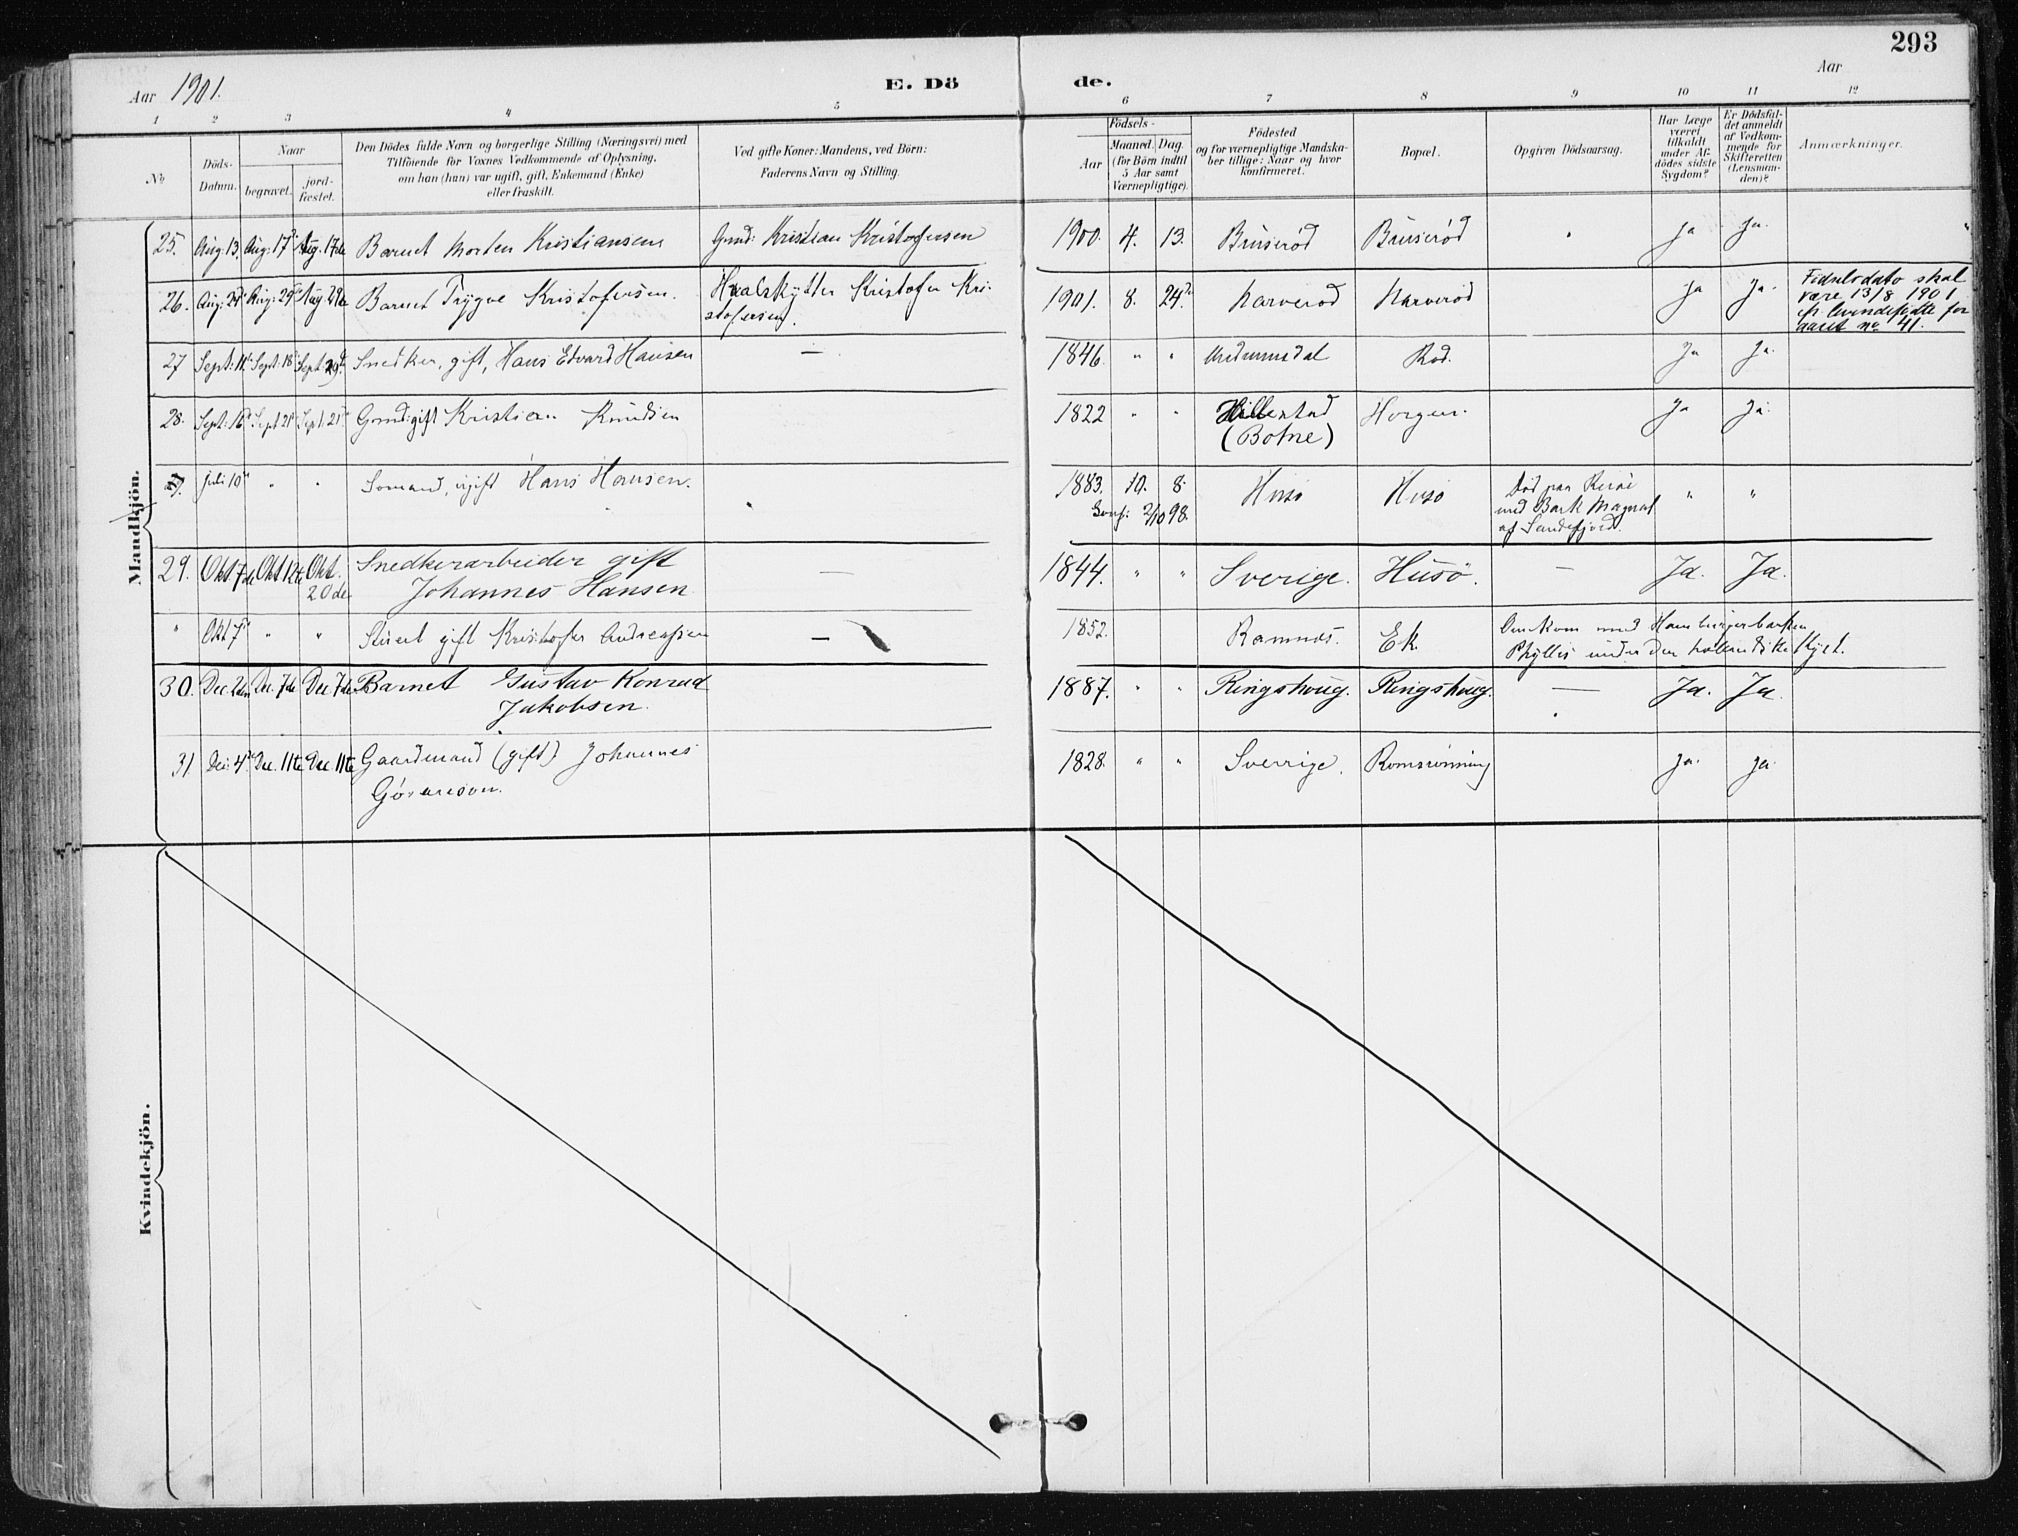 293
Aar 1901.
E. Dö
de.
Aar
1 2 3 4 5 6 7 8 9 10 11 12
No
Döds-Datum.
Naar
begravet.
jord-fæstet.
Den Dödes fulde Navn og borgerlige Stilling (Næringsvei) med
Tilföiende for Voxnes Vedkommende af Oplysning,
om han (hun) var ugift, gift, Enkemand (Enke)
eller fraskilt.
Ved gifte Koner: Mandens, ved Börn:
Faderens Navn og Stilling.
Födsels-
Aar
Maaned. Dag.
(for Börn indtil
5 Aar samt
Værnepligtige).
Födested
og for værnepligtige Mandska-
ber tillige: Naar og hvor
konfirmeret.
Bopæl.
Opgiven Dödsaarsag.
Har Læge
været
tilkaldt
under Af-
dödes sidste
Sygdom?
Er Dödsfal-
det anmeldt
af Vedkom-
mende for
Skifteretten
(Lensman-
den)?
Anmærkninger.
Mandkjön.
25. Aug. 13. Aug: 17d Aug. 17de Barnet Morten Kristiansen Gmd: Kristian Kristofersen 1900. 4. 13. Bruserød Bruserød Ja Ja.
26. Aug: Aug: 29d Aug 29de Barnet Trygve Kristofersen. Hvalskytter Kristofer Kri-
stofersen. 1901. 8. 24d Narverød Narverød Ja Ja.
Fødselsdato skal
være 13/8 1901
for
aaret no 41.
27 Sept: 11 Sept: 18 Sept: 29d Snedker, gift, Hans Edvard Hansen — 1846. " " Rød. Ja Ja.
28. Sept: 16d Sept 21d Sept: 21d Gmd: gift Kristian Knudsen 1822 " " Hillestad
(Botne) Horgen. Ja Ja.
Juli 10d " " Sømand, ugift Hans Hansen. 1883. 10. 8.
Conf: 2/10 98. Husø Husø Død paa Reise
med Bark Magnat
af Sandefjord. " "
29. Okt 7de Okt 12te Okt.
20de Snedkerarbeider gift
Johannes Hansen — 1844. " " Sverige. Husö. — Ja. Ja.
" Okt 7d " " Stuert gift Kristofer Andreassen — 1852. Ramnæs. Ek. Omkom med Hamburgerbarken
Phyllis under den hollandske Kyst.
30. Dec. 2den Dec. 7de Dec 7de Barnet Gustav Konrad
Jakobsen. 1887. " " Ringshoug. Ringshoug. — Ja. Ja.
31 Dec: 4d Dec. 11te Dec. 11te Gaardmand (gift) Johannes
1828. " " Sverrige. Romsrønning Ja. Ja.
Kvindekjön.